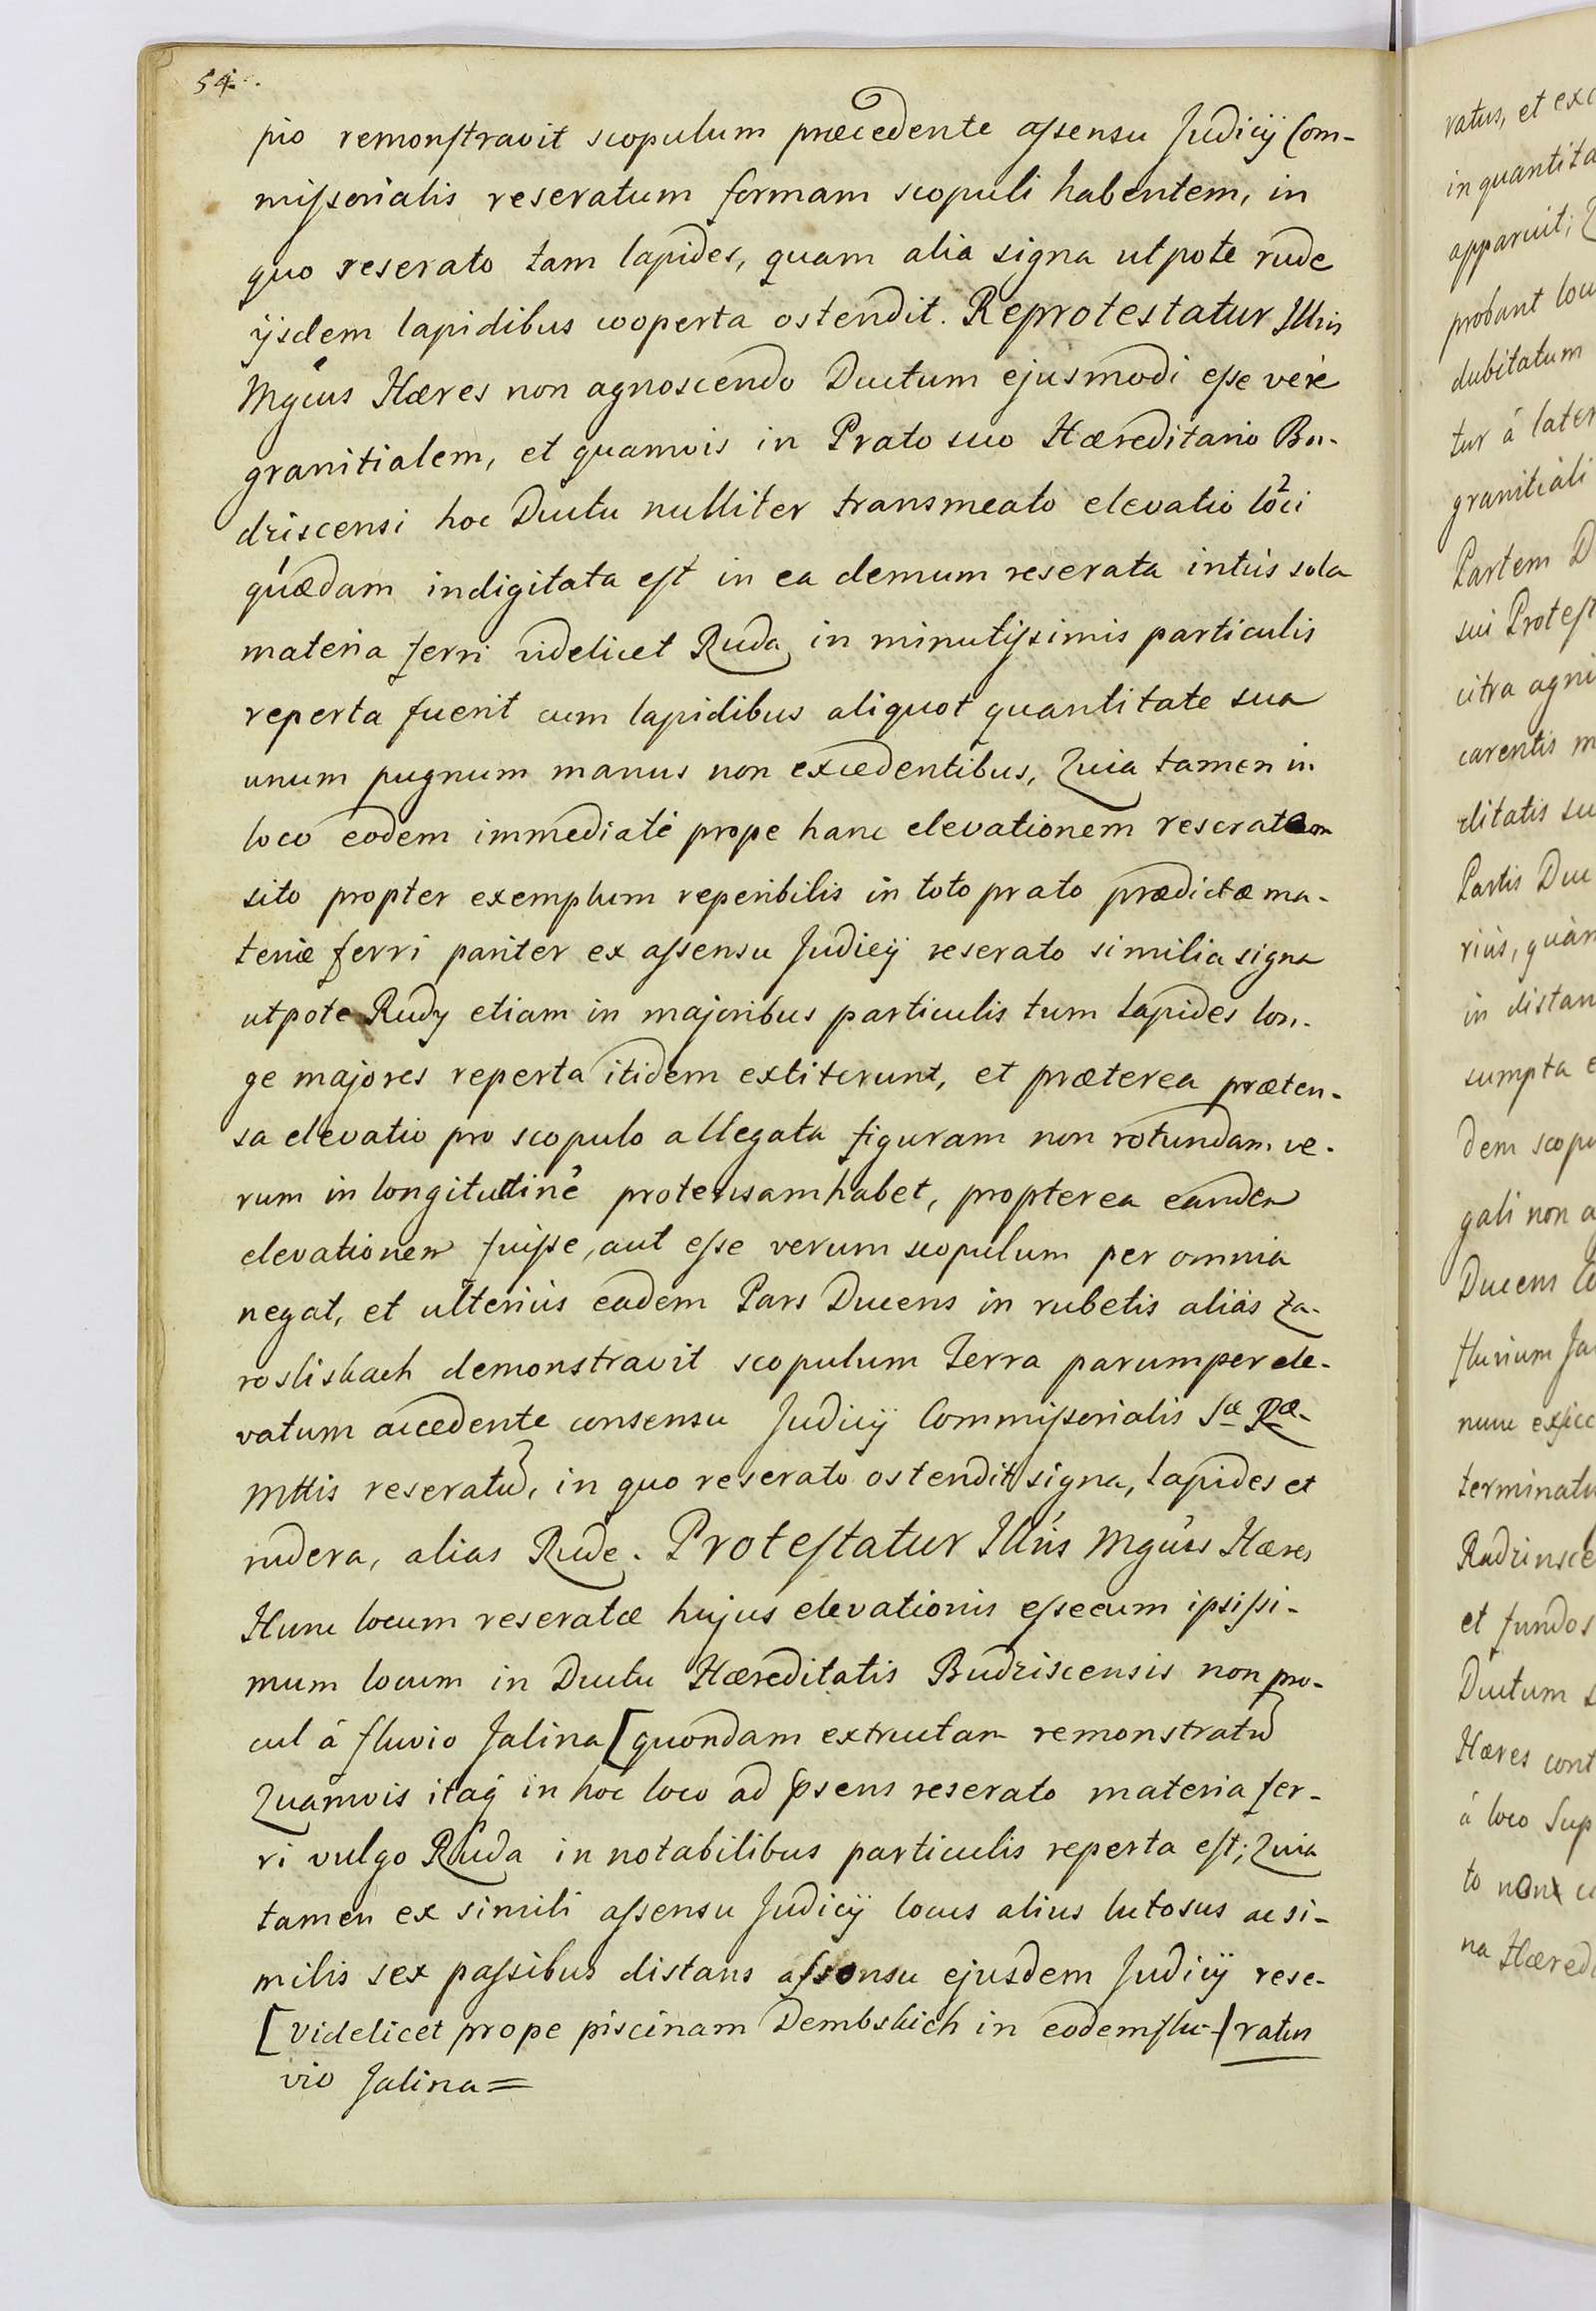 54.
pio remonstravit scopulum præcedente assensu Judicij Com-
missorialis reseratum formam scopuli habentem, in
quo reserato tam lapides, quam alia signa utpote rude
ijsdem lapidibus cooperta ostendit. Reprotestatur Illris
Mgcus Hæres non agnoscendo Ductum ejusmodi esse verè
granitialem, et quamvis in Prato suo Hæreditario Bu-
driscensi hoc Ductu nulliter transmeato elevatio loci
quædam indigitata est in ea demum reserata intùs sola
materia ferri videlicet Ruda in minutissimis particulis
reperta fuerit cum lapidibus aliquot quantitate sua
unum pugnum manus non excedentibus, Quia tamen in
loco eodem immediatè prope hanc elevationem reseratam
sito propter exemplum reperibilis in toto prato prædictæ ma-
teriæ ferri pariter ex assensu Judicij reserato similia signa
utpote Rudy etiam in majoribus particulis tum lapides lon-
ge majores reperta itidem extiterunt, et præterea præten-
sa elevatio pro scopulo allegata figuram non rotundam ve-
rum in longitudinẽ protensam habet, propterea eandem
elevationem fuisse, aut esse verum scopulum per omnia
negat, et ulterius eadem Pars Ducens in rubetis aliàs Za-
rosliskach demonstravit scopulum Terra parumper ele-
vatum accedente consensu Judicij Commissorialis Sæ Ræ
Mttis reseratũ, in quo reserato ostendit signa, lapides et
rudera, alias Rude. Protestatur Illris Mgcus Hæres
Hunc locum reseratæ hujus elevationis esse cum ipsissi-
mum locum in Ductu Hæreditatis Budziscensis non pro-
cul à fluvio Jalina [quondam extructam remonstratũ
Quamvis itaq in hoc loco ad psens reserato materia fer-
ri vulgo Ruda in notabilibus particulis reperta est; Quia
tamen ex simili assensu Judicij locus alius lutosus ac si-
milis sex passibus distans assensu ejusdem Judicij rese-
[videlicet prope piscinam Dembskich in eodem flu-] ratus
vio Jalina =
ratus, et exc
in quantita
apparuit;
probant lo
dubitatum
tur à later
granitiali
Partem D
sui Protest
citra agni
carentis m
ditatis su
Partis Duc
riùs, quàm
in distan
sumpta e
dem scopu
gali non a
Ducens
fluvium Ja
nunc exsicc
terminatu
Budzinsce
et fundos
Ductum
Hæres cont
à loco Sup
to non
na Hæred